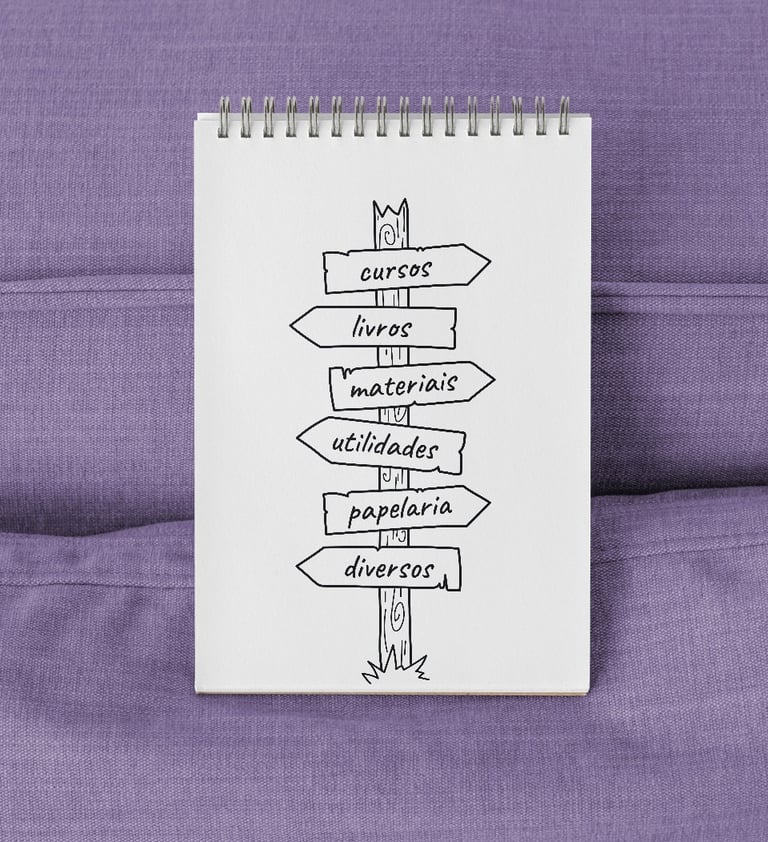 cursos
livros
materiais
utilidades
papelaria
diversos